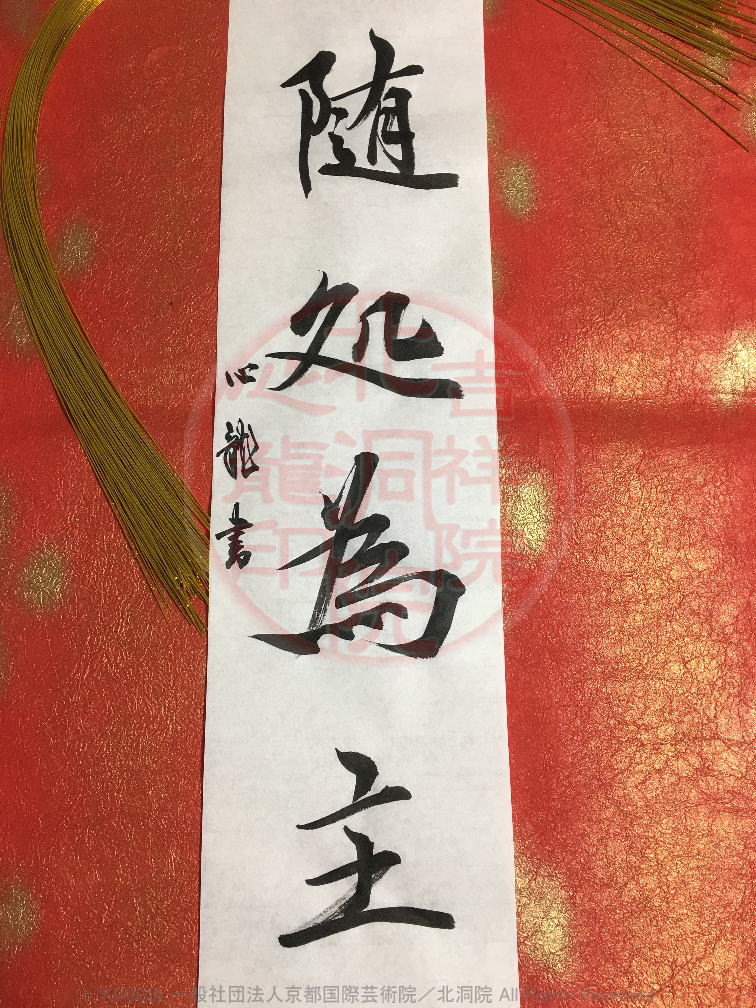 随処為主
心龍書
吉祥院
北洞院
心龍印
一般社団法人京都国際芸術院／北洞院 All Rights Reserved